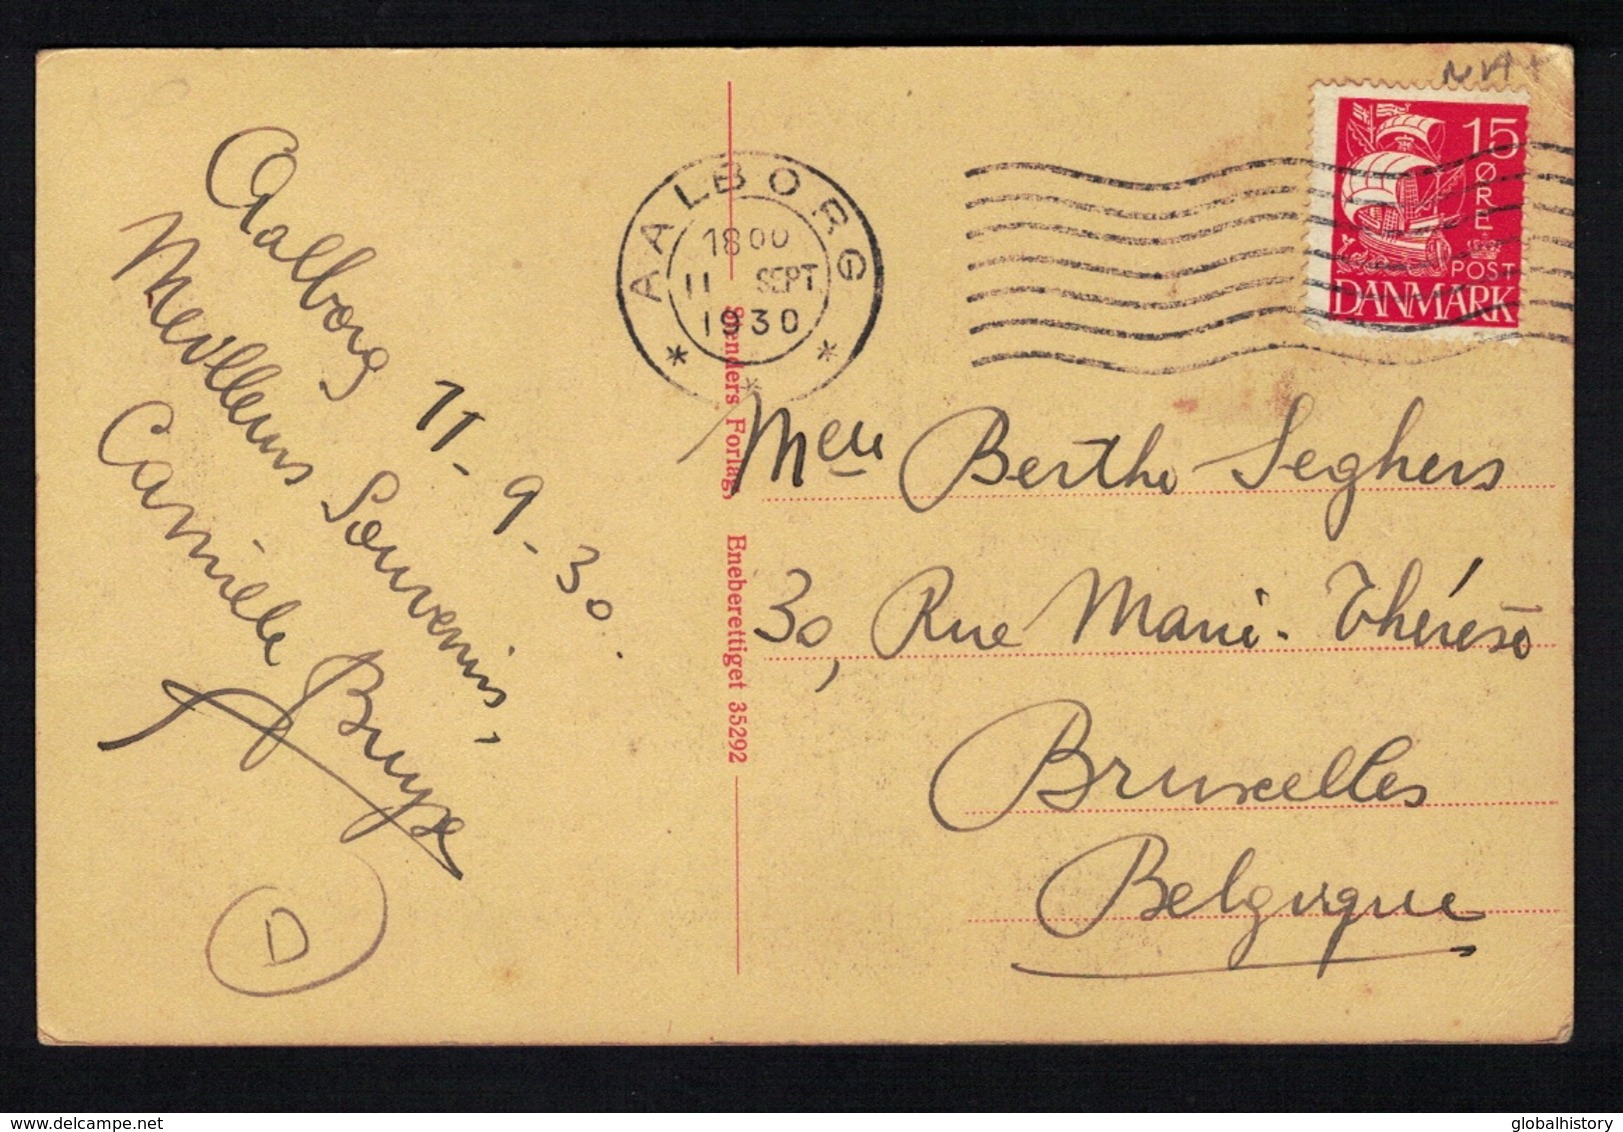 Aalborg 11-9-30.
Meilleurs Souvenirs,
Camille Bruyx
D
Stenders Forlag, Eneberettiget 35292
AALBORG
1800
11 SEPT.
1930
15
ØRE
POST
DANMARK
Melle Berthe Seghers
30, Rue Marie-Thérèse
Bruxelles
Belgique
globalhistory